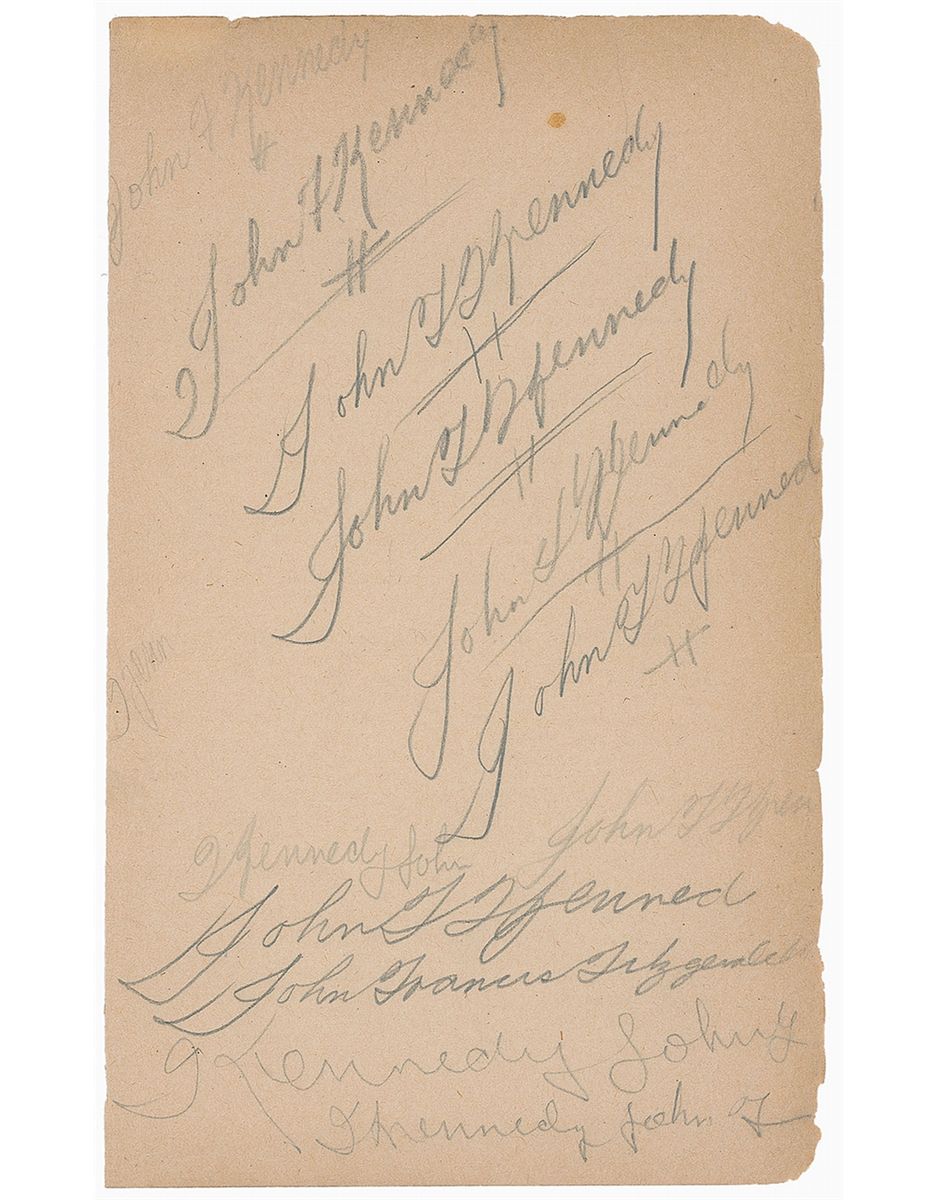 John F Kennedy
John F Kennedy
John F Kennedy
John F Kennedy
John F Kennedy
John F Kenned
Kenn
Kennedy John
John F Kenn
John F Kenned
John Francis Fitzgerald
Kennedy John F
Kennedy John F